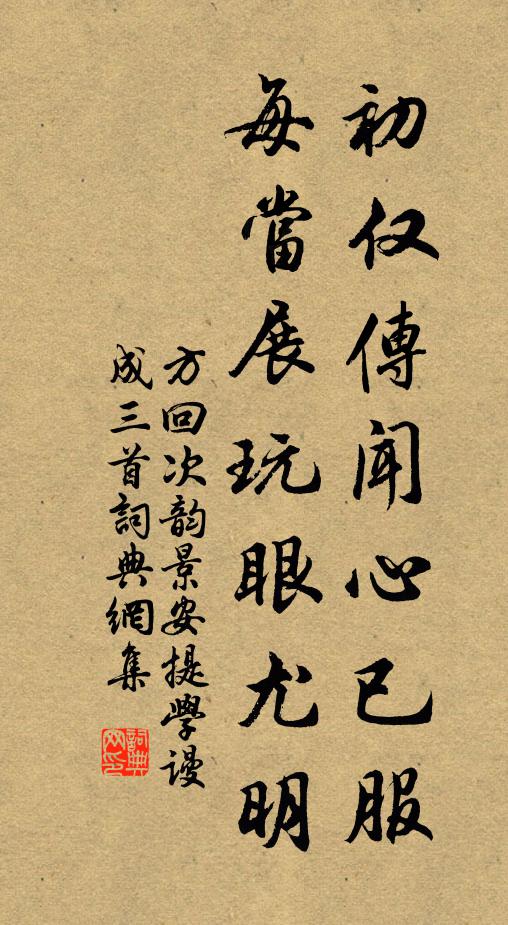 初仅傳聞心已服
每當展玩眼尤明
方回次韵景安提學謾
成三首詞典網集
詞典
网印